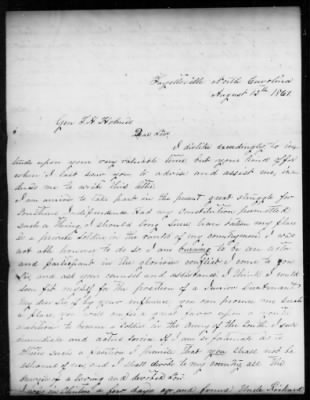 Fayetteville North Carolina
August 13th 1861
Gen T. H. Holmes
Dear Sir,
I dislike exceedingly to in-
trude upon your very valuable time but your kind offer
when I last saw you to advise and assist me, in-
duces me to write this letter
I am anxious to take part in the present great struggle for
Southern Independence. Had my constitution permitted
such a thing I should long since have taken my place
as a private soldier in the ranks of my countrymen. I was
not able having to do so. I am burning to be an actor
and participant in the glorious conflict. I come to you
Sir, and ask your counsel and assistance. I think I could
soon fit myself for the position of a Junior Lieutenant
my dear Sir if by your influence you can procure me such
a place, you will confer a great favor upon a young
man to become a soldier in the Army of the South. I see
immediate and active service. If I am so fortunate as to
obtain such a position I promise that you shall not be
ashamed of me, and I shall devote to my country all the
energies of a loving and devoted son.
I was in Clinton a few days ago and found Uncle Richard